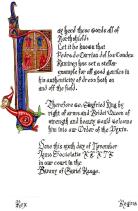 Hay heed these words all of
Northshield:
Let it be known that
Pedro de Carrion del los Condes
Running has set a stellar
example for all good gentles in
his authenticity of dress both on
and off the field.
Therefore we, Siegfried King by
right of arms and Bridei Queen of
strength and beauty would welcome
him into our Order of the Pyxis.
Done this sixth day of November
Anno Societatis
in our court in the
Barony of
Rex Regina